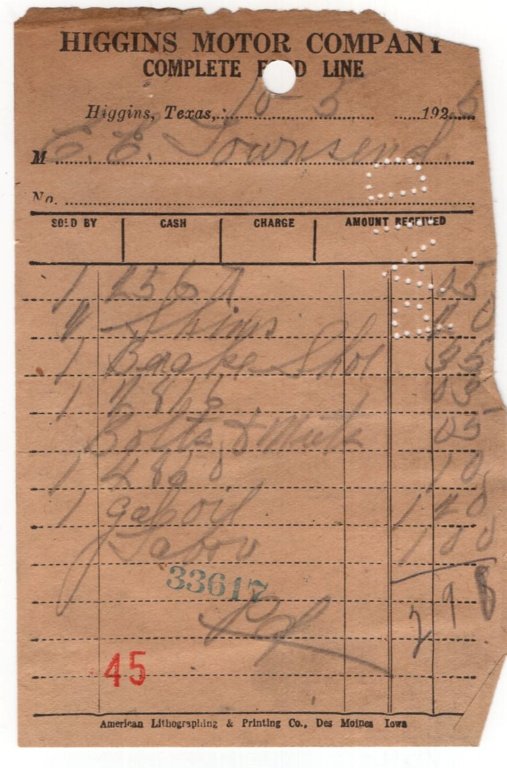 HIGGINS MOTOR COMPANY
COMPLETE FORD LINE
Higgins, Texas, 10-3 1925
M C. E. Townsend
No.
SOLD BY CASH CHARGE AMOUNT RECEIVED
PAID
1 2567 05
4 Shims 20
1 Brake Shoe 35
1 03
Bolts & Nuts 05
1 4860 10
1 gal oil 1 40
Labor 1 00
33617
2 98
Pd
45
American Lithographing & Printing Co., Des Moines Iowa